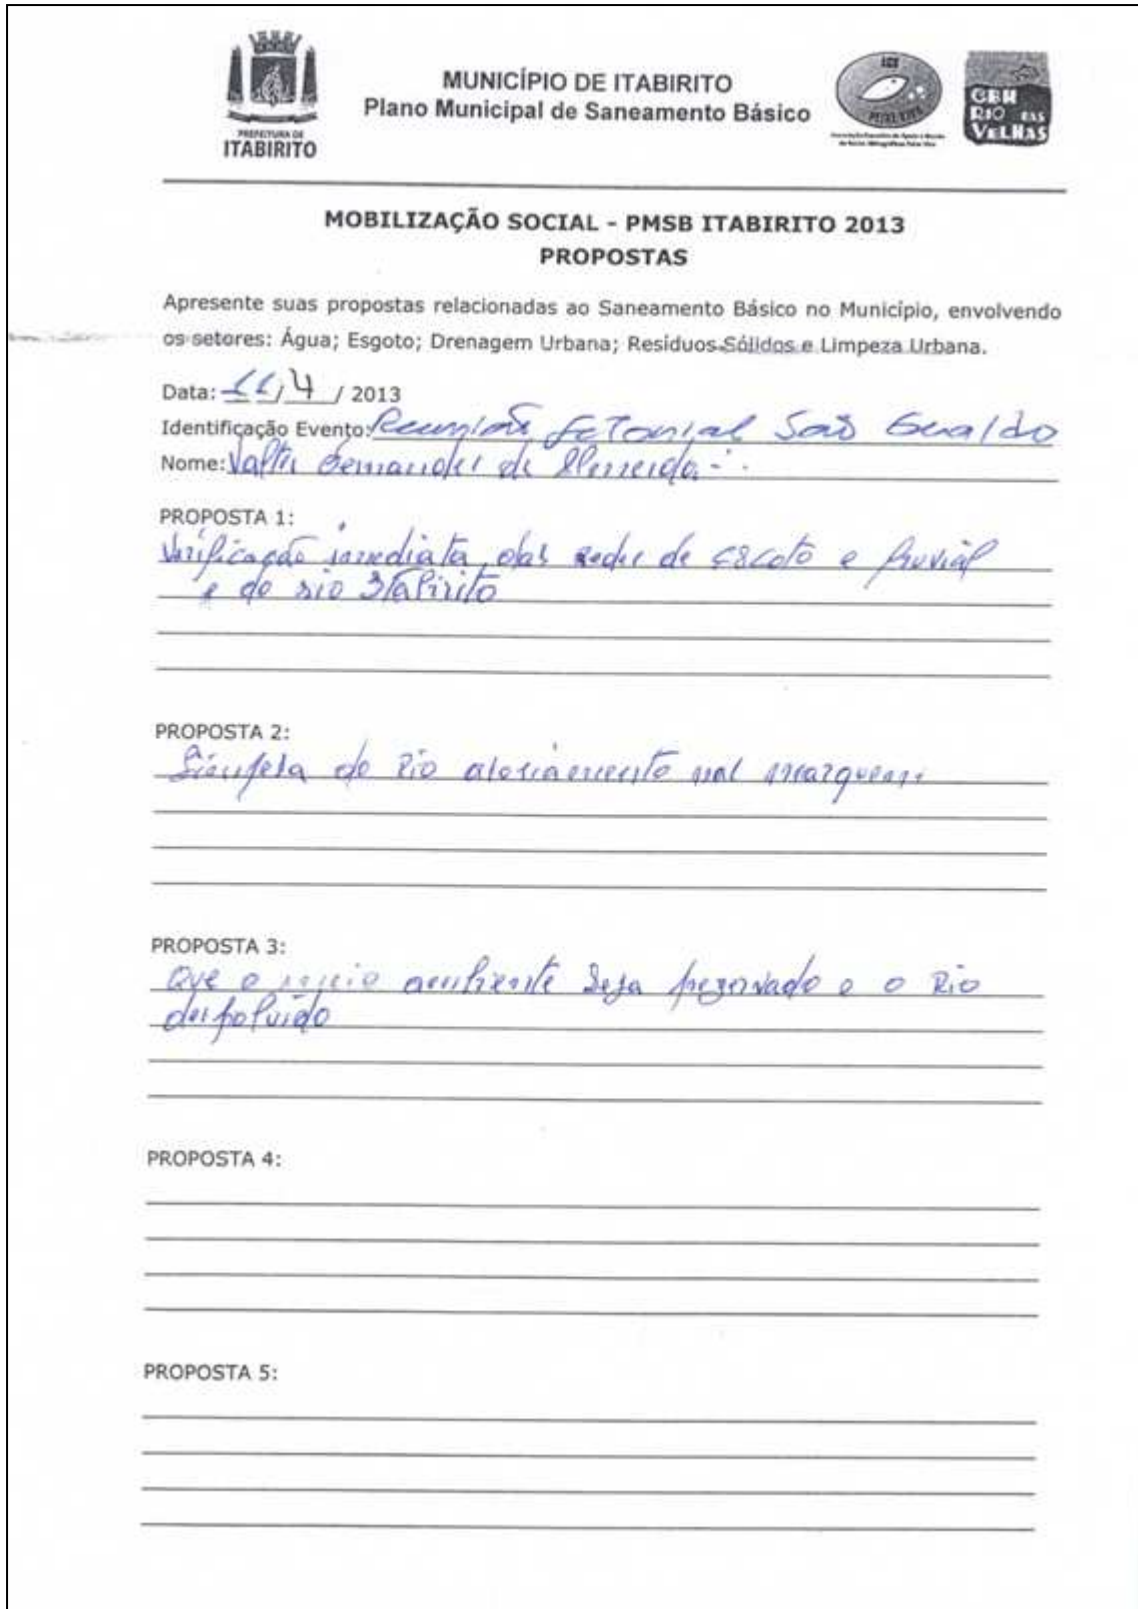 PREFEITURA DE
ITABIRITO
MUNICÍPIO DE ITABIRITO
Plano Municipal de Saneamento Básico
CBH
RIO DAS
VELHAS
MOBILIZAÇÃO SOCIAL - PMSB ITABIRITO 2013
PROPOSTAS
Apresente suas propostas relacionadas ao Saneamento Básico no Município, envolvendo
os setores: Água; Esgoto; Drenagem Urbana; Resíduos Sólidos e Limpeza Urbana.
Data: 11/4 / 2013
Identificação Evento: Reunião Setorial São Geraldo
Nome: Valter de Almeida
PROPOSTA 1:
Verificação imediata das redes de escoto e fluvial
e do rio Itabirito
PROPOSTA 2:
do Rio nas marguens
PROPOSTA 3:
Que o meio ambiente seja prezervado e o Rio
despoluido
PROPOSTA 4:
PROPOSTA 5: